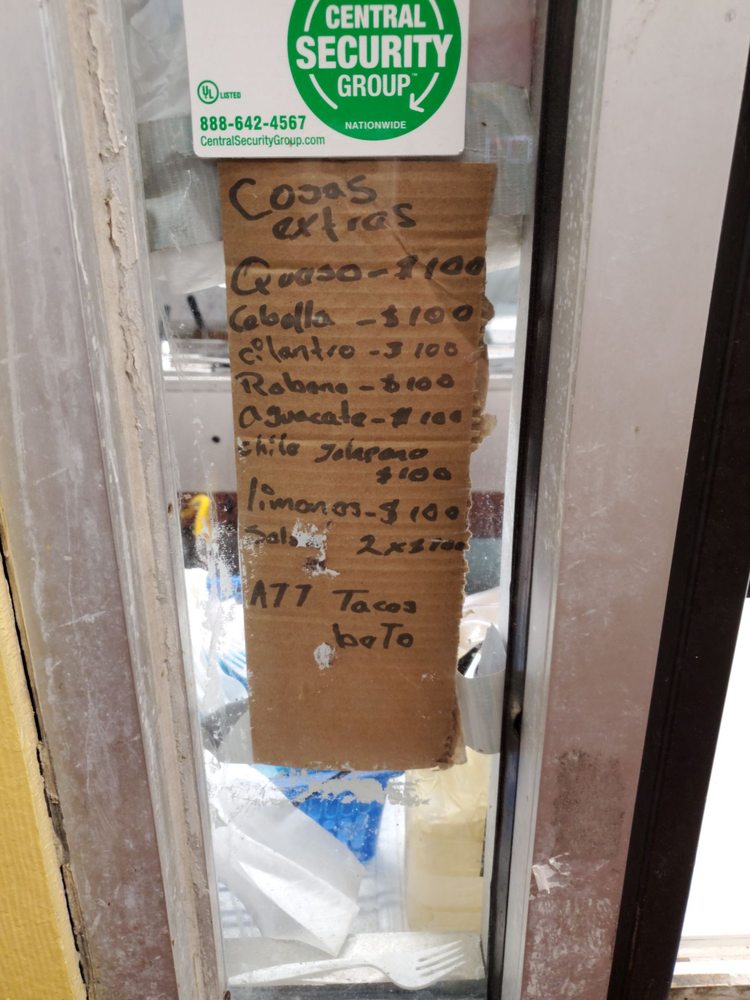 CENTRAL
SECURITY
GROUP™
NATIONWIDE
UL LISTED
888-642-4567
CentralSecurityGroup.com
Cosas
extras
Queso - $100
Cebolla - $100
cilantro - $100
Rabano - $100
aguacate - $100
chile Jalapeno
$100
limones - $100
2x$100
ATT Tacos
beTo